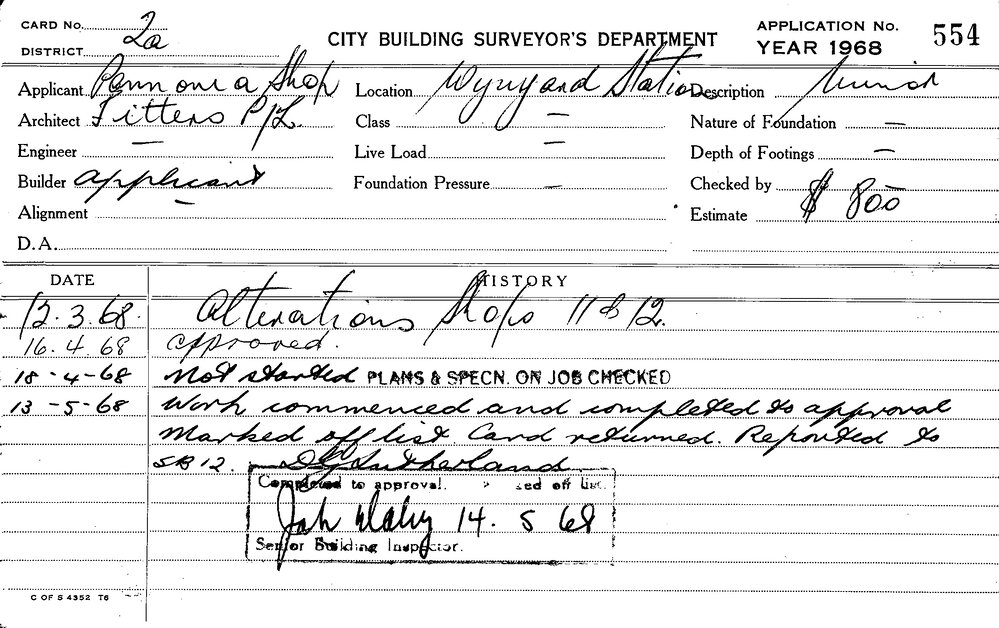 CARD No. 2a
DISTRICT
CITY BUILDING SURVEYOR'S DEPARTMENT
APPLICATION No. 554
YEAR 1968
Applicant Pann on a Shop Location Wynyard Station Description
Architect Fitters P/L. Class — Nature of Foundation —
Engineer — Live Load — Depth of Footings —
Builder applicant Foundation Pressure — Checked by
Alignment — Estimate $ 800
D.A.
DATE HISTORY
12.3.68. Alterations Shops 11 & 12.
16.4.68 approved.
18-4-68 Not started PLANS & SPECN. ON JOB CHECKED
13-5-68 Work commenced and completed to approval
Marked off list. Card returned. Reported to
SB 12. Sutherland
Completed to approval. ed off list.
14. 5 68
Senior Building Inspector.
C OF S 4352 T6